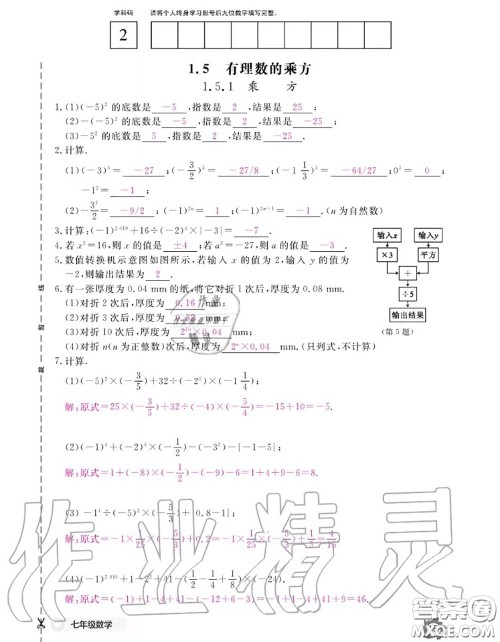 学科码 请将个人终身学习形号后九位数字填写完整。
2
1.5 有理数的乘方
1.5.1 乘 方
1.(1)(-5)² 的底数是 -5 ,指数是 2 ,结果是 25 ;
(2)-(-5)² 的底数是 -5 ,指数是 2 ,结果是 -25 ;
(3)-5² 的底数是 5 ,指数是 2 ,结果是 -25 .
2.计算.
(1)(-3)³ = -27 ;(-3/2)³ = -27/8 ;(-1 1/3)³ = -64/27 ;0² = 0 ;
-1² = -1 ;
(2)-3²/2 = -9/2 ;(-1)²ⁿ = 1 ;(-1)²ⁿ⁺¹ = -1 .(n 为自然数)
3.计算:(-1) +16÷(-2)³×|-3|= -7 .
4.若 x²=16,则 x 的值是 ±4 ;若 a³=-27,则 a 的值是 -3 .
5.数值转换机示意图如图所示,若输入 x 的值为 2,输入 y 的值为
-2,则输出结果为 2 .
输入x 输入y
×3 平方
+
÷5
输出结果
(第 5 题)
6.有一张厚度为 0.04 mm 的纸,将它对折 1 次后,厚度为 0.08 mm.
(1)对折 2 次后,厚度为 0.16 mm;
(2)对折 3 次后,厚度为 0.32 mm;
(3)对折 10 次后,厚度为 2¹⁰×0.04 mm;
(4)对折 n(n 为正整数)次后,厚度为 2ⁿ×0.04 mm.(只列式,不计算)
7.计算.
(1)(-5)²×(-3/5)+32÷(-2)²×(-1 1/4);
解:原式=25×(-3/5)+32÷4×(-5/4)=-15+10=-5.
(2)(-1)⁴+(-2)³×(-1/2)-(-3²)-|-1-5|;
解:原式=1+(-8)×(-1/2)-(-9)-6=1+4+9-6=8.
(3)-1⁴÷(-5)²×(-5/3)+|0.8-1|;
(4)(-1) +1-2²+(1/2-1/4+1/8)×(-24).
解:原式=(-1)+1-4-(-12+6-3)=-1+1-4+12-6+3=5.
七年级数学
作业精灵
答案圈
MXQE.COM